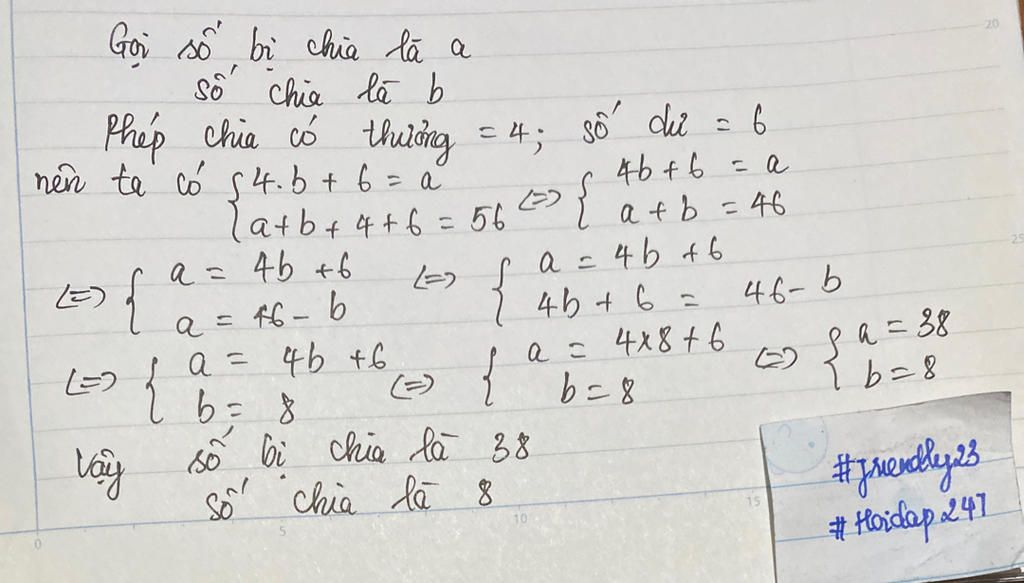 Gọi số bị chia là a
số chia là b
Phép chia có thương = 4; số dư = 6
nên ta có { 4.b + 6 = a <=> { 4b + 6 = a
a + b + 4 + 6 = 56 a + b = 46
<=> { a = 4b + 6 <=> { a = 4b + 6
a = 46 - b 4b + 6 = 46 - b
<=> { a = 4b + 6 <=> { a = 4x8 + 6 <=> { a = 38
b = 8 b = 8 b = 8
Vậy số bị chia là 38
số chia là 8
#friendly23
#Hoidap247
20
25
0 5 10 15